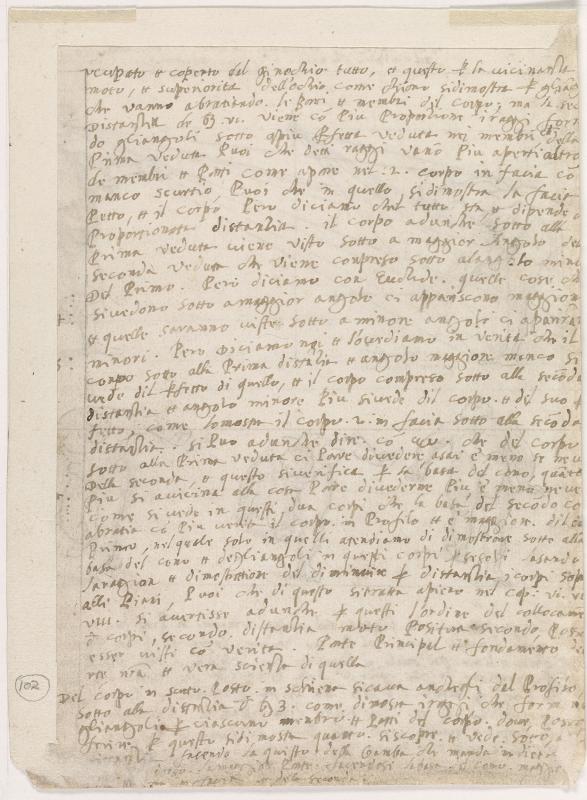 ocupato et coperto del ginochio tutto, et questo p la vicinanza
moto, et superiorita dell'ochio come chiaro sidimostra p gliang
che vanno abraciando le Parti et membri del Corpo; ma la sec
Distantia de b3 vi. viene co Piu Proportione i raggi form
do gliangoli sotto piu fetta veduta nei membri della
Prima veduta Puoi che detti raggi vano Piu aperti altro
de membri et Parti come apare nel .2. corpo in facia co
manco scurtio, Puoi che in quello, sidimostra la facia
Petto, et il corpo, Pero diciamo che tutto sta et dipende
Proportionata distantia. il corpo adunche, sotto alla
Prima veduta viene visto sotto a maggior Angolo del
seconda veduta che viene conpreso sotto alangolo mino
Del Primo. Pero diciamo con Euclide. quelle cose ch
sivedono sotto a maggior angolo ci appariscono maggiori
et quelle saranno viste sotto a minore angolo ci aparira
minori. Pero Diciamo noi et lovediamo in verita che il
corpo sotto alla Prima distatia et angolo maggiore manco si
vede dil fetto di quello, et il corpo compreso sotto alla secoda
distantia et angolo minore Piu sivede dil corpo. et del suo
fetto, come lomostra il corpo .2. in facia sotto alla secoda
distantia. si Puo adunche dire. co che del corpo
sotto alla Prima veduta ci Pare divedere asai e meno se ne v
Della seconda, et questo siverifica p la basa del cono, quato
Piu si avicina alla cosa Pare divederne Piu e meno neve
Come si vede in questi dua corpi che la basa del secodo co
abratia co Piu verita il corpo. in Profilo et è maggiore. dil co
Primo, nel quale solo in quelli atendiamo di dimostrare sotto alla
basa del cono et degliangoli in questi corpi lasando
laragion et dimostratione del diminuire p distantia, i corpi sopra
alli Piani, Puoi che di questo sitratta apieno nel cap: vi. vii
viii. si avertisse adunche p questi lordine del collocame
d corpi, secondo. distantia moto Positura secondo, Poss
esser visti co verita. Parte Principal et fondamento de
rte nra et vera scienza di quella
Del corpo in scurto. Posto. in schiena sicava ancholsi dal Profilo
sotto alla distantia d b3. come, dimosta iraggi che forma
gliangoli. p ciascuno membro et Parti del corpo. dove, Posse
p questo sidimostra quanto. siscopre. et vede. sotto a
facendo la questo della gamba che manda in dietro
maggior Parte. facendosi la basa. d cono. maggio
in facia della seconda
102